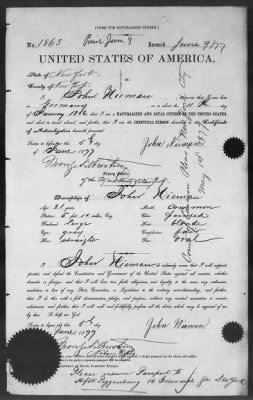 [FORM FOR NATURALIZED CITIZEN.]
No. 1865 June 9 Issued June 9/77
UNITED STATES OF AMERICA.
State of New York
County of New York
I, John Nieman do swear that I was born
in Germany on or about the 11 th day
of January 1856 that I am a NATURALIZED AND LOYAL CITIZEN OF THE UNITED STATES,
and about to travel abroad; and further, that I am the IDENTICAL PERSON described in the Certificate
of Naturalization herewith presented.
Sworn to before me this 8th
day of June 1877 John Nieman
Notary Public
of the City and County of New York
Description of John Nieman
Age: 21 years Mouth: common
Stature: 5 feet inches, Eng. Chin:
Forehead: large Hair: blonde
Eyes: gray Complexion: fair
Nose: straight Face: oval
I, John Nieman do solemnly swear that I will support,
protect, and defend the Constitution and Government of the United States against all enemies, whether
domestic or foreign; and that I will bear true faith, allegiance, and loyalty to the same, any ordinance,
resolution or law of any State Convention or Legislature to the contrary notwithstanding; and further,
that I do this with a full determination, pledge, and purpose, without any mental reservation or evasion
whatsoever; and further, that I will well and faithfully perform all the duties which may be required of me
by law. So help me God.
Sworn to before me this 8th
day of June 1877 John Nieman
Please return Passport to
New York